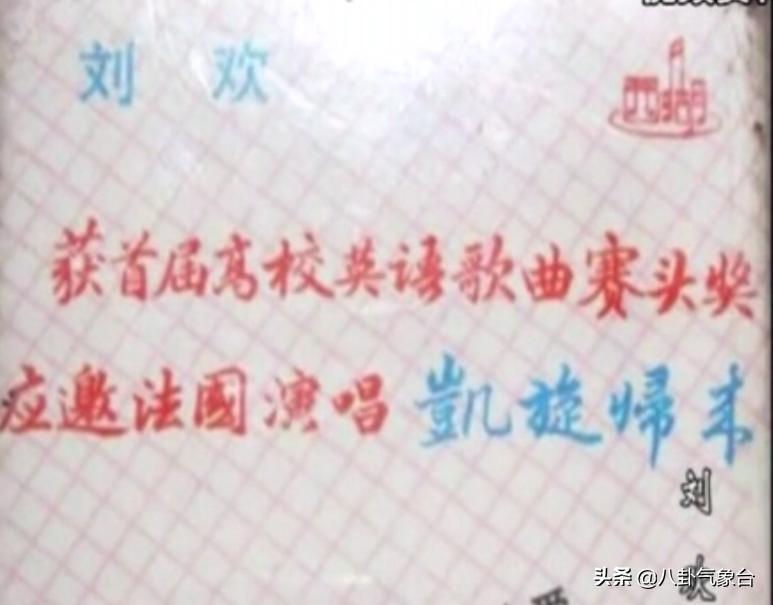 刘 欢
获首届高校英语歌曲赛头奖
应邀法國演唱 凱旋歸来
刘
头条 @八卦气象台